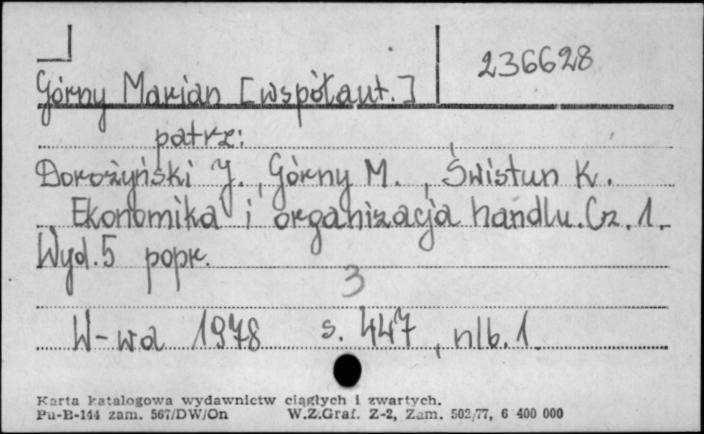 236628
Górny Marian [współaut.]
patrz:
Dorożyński J., Górny M., Świstun K.
Ekonomika i organizacja handlu. Cz. 1.
Wyd. 5 popr.
3
W-wa 1978 s. 447, nlb. 1
Karta katalogowa wydawnictw ciągłych i zwartych.
Pu-B-144 zam. 567/DW/On W.Z.Graf. Z-2, Zam. 502/77, 6 400 000